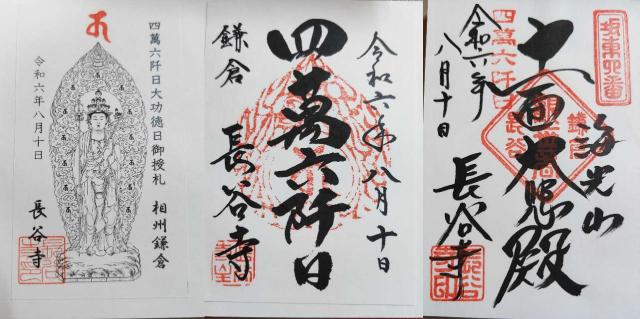 四萬六阡日大功徳日御授札
相州鎌倉
令和六年八月十日
長谷寺
令和六年八月十日
四萬六阡日
鎌倉
長谷寺
坂東四番
海光山
十一面大悲殿
四萬六阡日
令和六年
八月十日
長谷寺
鎌倉
長谷